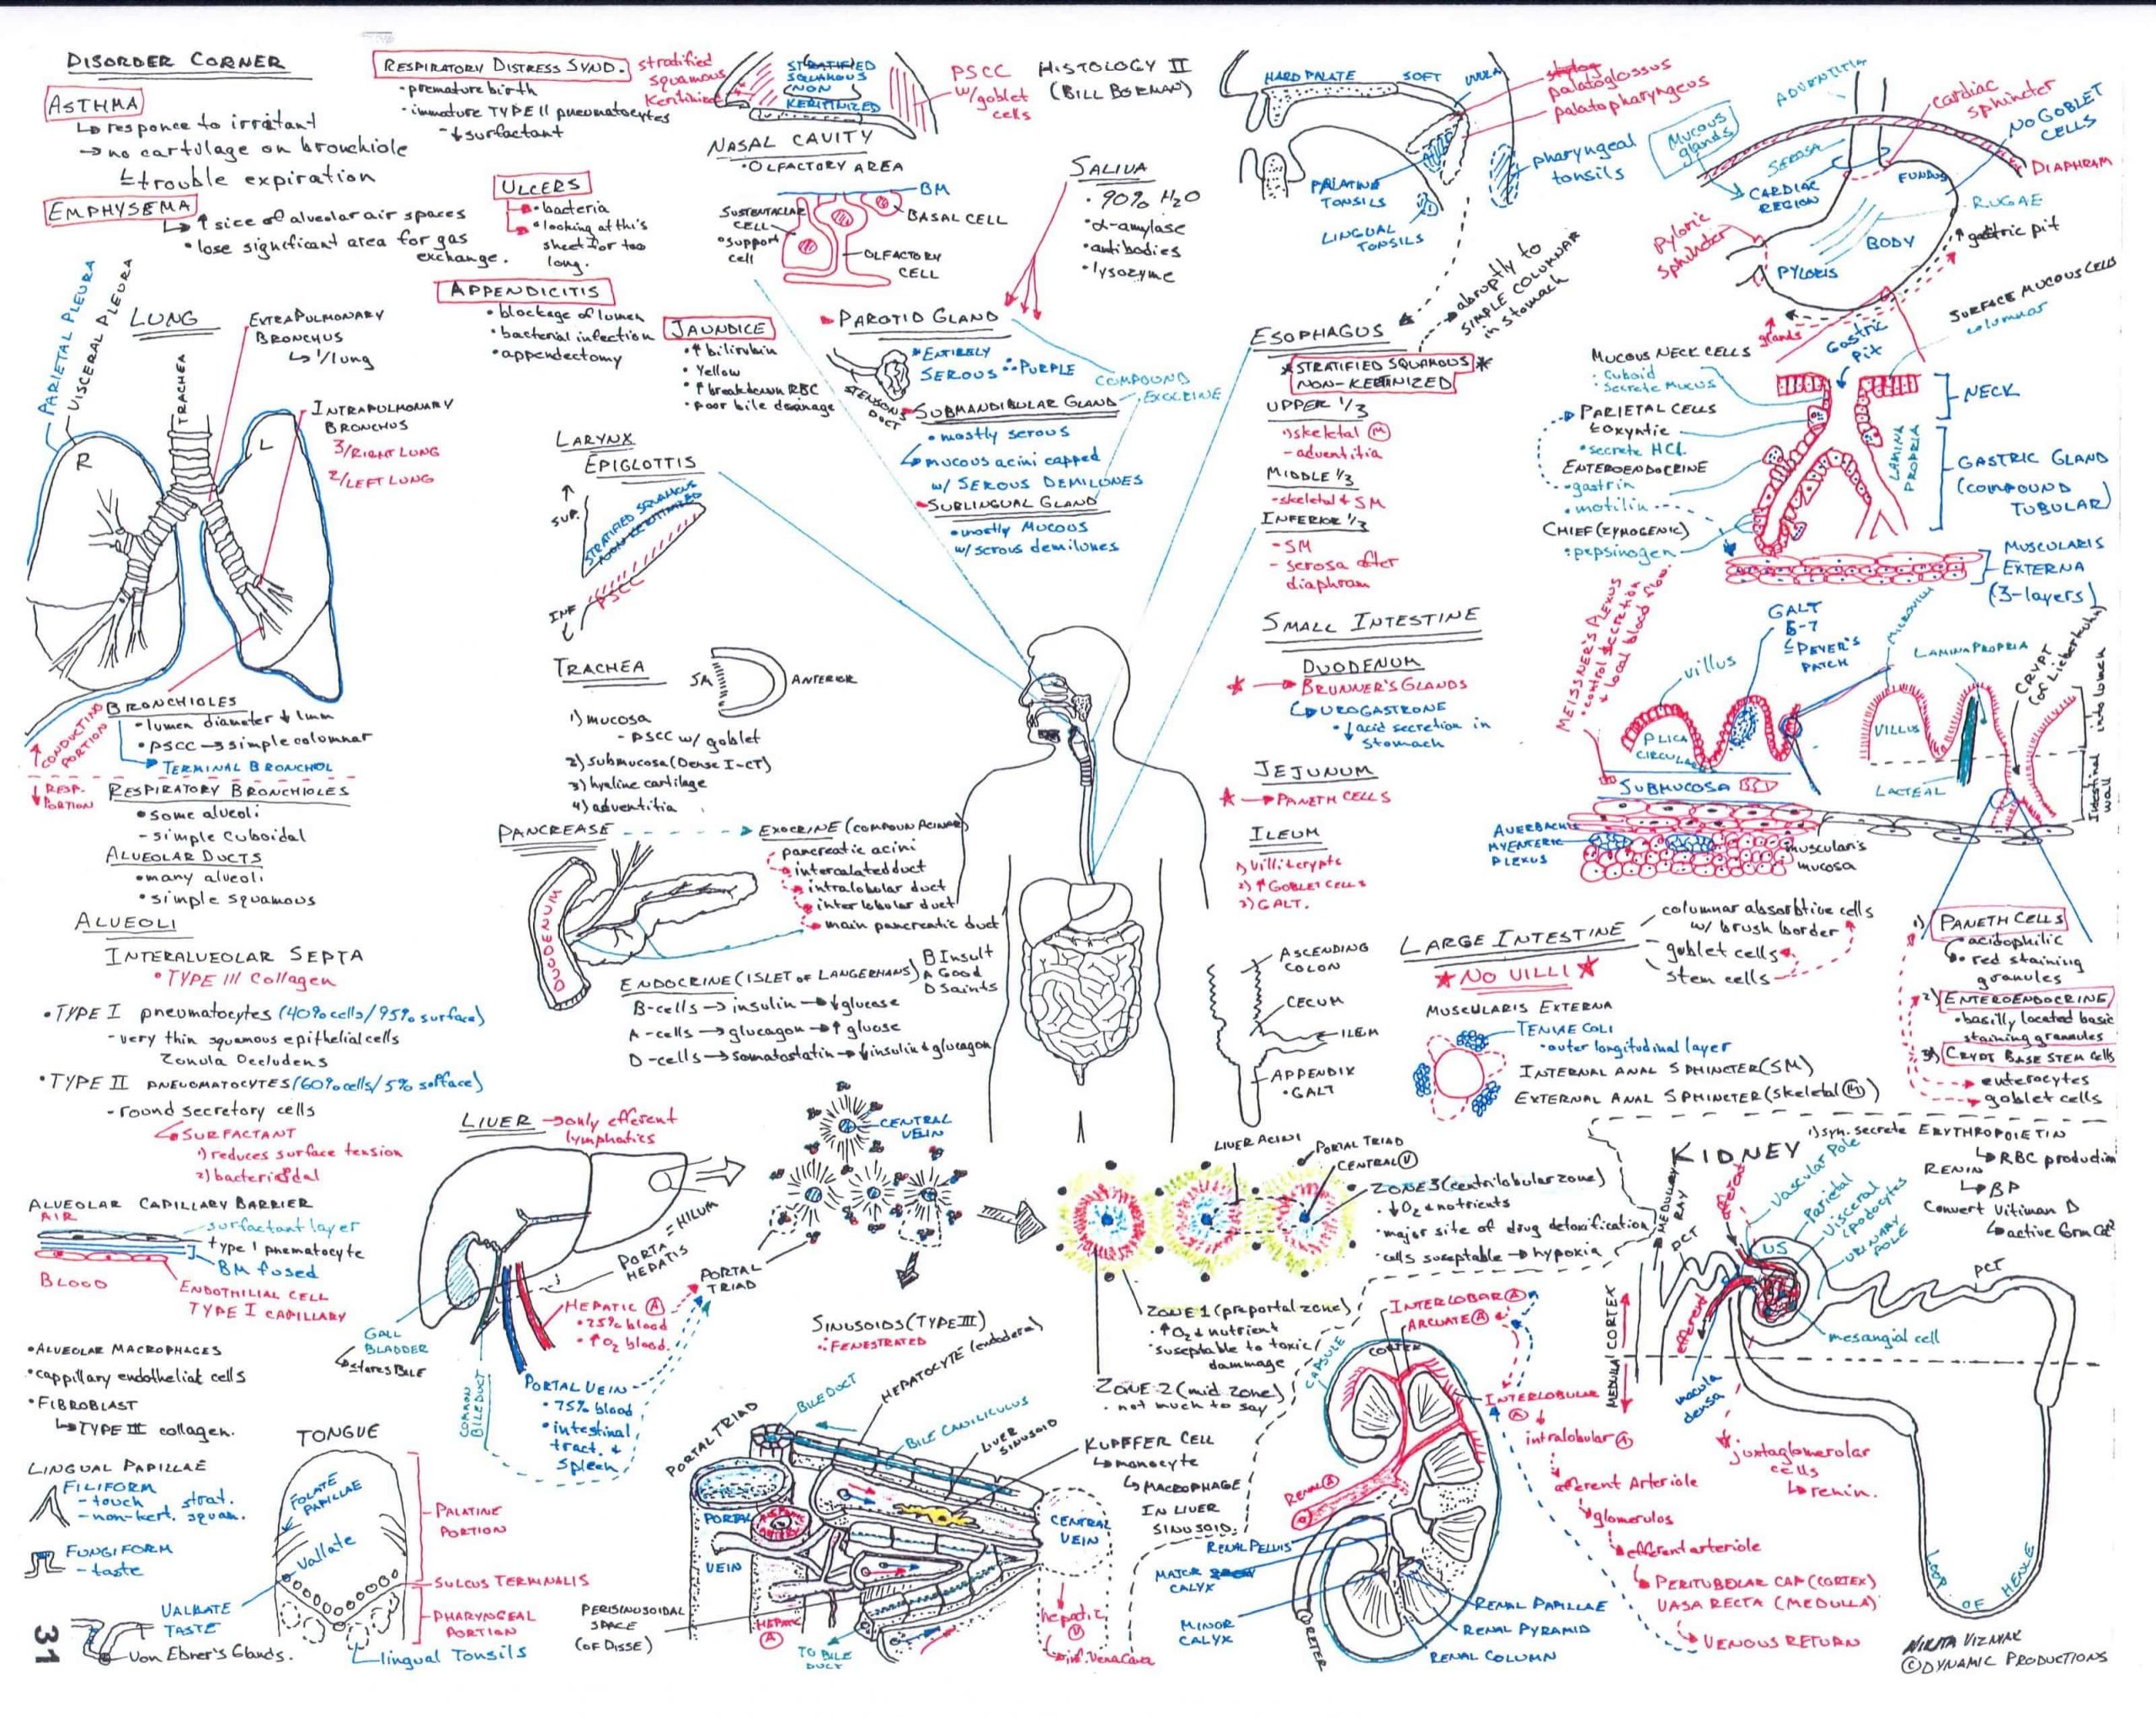 DISORDER CORNER
ASTHMA
responce to irritant
no cartulage on bronchiole
trouble expiration
EMPHYSEMA
↑ size of alveolar air spaces
• lose significant area for gas
exchange.
RESPIRATORY DISTRESS SYND.
• premature birth
• immature TYPE II pneumatocytes
- ↓ surfactant
ULCERS
• bacteria
• looking at this
sheet for too
long.
APPENDICITIS
• blockage of lumen
• bacterial infection
• appendectomy
JAUNDICE
• ↑ bilirubin
• Yellow
• ↑ breakdown RBC
• poor bile drainage
stratified
squamous
Keritinized
STRATIFIED
SQUAMOUS
NON
KERITINIZED
PSCC
w/goblet
cells
HISTOLOGY II
(BILL BORMAN)
NASAL CAVITY
• OLFACTORY AREA
BM
SUSTENTACLAR
CELL
• support
cell
BASAL CELL
OLFACTORY
CELL
SALIVA
• 90% H2O
• α-amylase
• antibodies
• lysozyme
PAROTID GLAND
ENTIRELY
SEROUS ∴ PURPLE
STENSONS
DUCT
COMPOUND
EXOCRINE
SUBMANDIBULAR GLAND
• mostly serous
mucous acini capped
w/ SEROUS DEMILUNES
SUBLINGUAL GLAND
• mostly MUCOUS
w/ serous demilunes
HARD PALATE
SOFT
UVULA
palatoglossus
palatopharyngeus
PALATINE
TONSILS
LINGUAL
TONSILS
pharyngeal
tonsils
abruptly to
SIMPLE COLUMNAR
in stomach
ADVENTITIA
cardiac
sphincter
NO GOBLET
CELLS
Mucous
glands
SEROSA
DIAPHRAM
CARDIAC
REGION
FUNDUS
RUGAE
pyloric
sphincter
BODY
gastric pit
PYLORIS
glands
Gastric
Pit
SURFACE MUCOUS CELLS
columnar
MUCOUS NECK CELLS
• cuboid
• secrete MUCUS
PARIETAL CELLS
• oxyntic
• secrete HCl.
ENTEROENDOCRINE
• gastrin
• motilin
CHIEF (ZYMOGENIC)
• pepsinogen
NECK
LAMINA
PROPRIA
GASTRIC GLAND
(COMPOUND
TUBULAR)
MUSCULARIS
EXTERNA
(3-layers)
ESOPHAGUS
* STRATIFIED SQUAMOUS *
NON-KERITINIZED
UPPER 1/3
skeletal M
- adventitia
MIDDLE 1/3
- skeletal & SM
INFERIOR 1/3
- SM
- serosa after
diaphram
PARIETAL PLEURA
VISCERAL PLEURA
LUNG
TRACHEA
R
L
EXTRAPULMONARY
BRONCHUS
1/lung
INTRAPULMONARY
BRONCHUS
3/RIGHT LUNG
2/LEFT LUNG
CONDUCTING
PORTION
BRONCHIOLES
• lumen diameter ↓ 1mm
• PSCC → simple columnar
TERMINAL BRONCHOL
RESP.
PORTION
RESPIRATORY BRONCHIOLES
• some alveoli
- simple cuboidal
ALVEOLAR DUCTS
• many alveoli
• simple squamous
ALVEOLI
INTERALVEOLAR SEPTA
• TYPE III Collagen
• TYPE I pneumatocytes (40% cells/95% surface)
- very thin squamous epithelial cells
Zonula Occludens
• TYPE II PNEUOMATOCYTES (60% cells/5% surface)
- round secretory cells
SURFACTANT
1) reduces surface tension
2) bacteriacidal
ALVEOLAR CAPILLARY BARRIER
AIR
surfactant layer
type I pnematocyte
BM fused
BLOOD
ENDOTHILIAL CELL
TYPE I CAPILLARY
• ALVEOLAR MACROPHAGES
• cappillary endothelial cells
• FIBROBLAST
TYPE III collagen.
LARYNX
EPIGLOTTIS
SUP.
STRATIFIED SQUAMOUS
NON KERITINIZED
PSCC
INF
TRACHEA
SM
ANTERIOR
1) mucosa
- PSCC w/ goblet
2) submucosa (Dense I-CT)
3) hyaline cartilage
4) adventitia
PANCREASE
EXOCRINE (COMPOUN ACINAR)
pancreatic acini
intercalated duct
intralobular duct
interlobular duct
main pancreatic duct
DUODENUM
ENDOCRINE (ISLET OF LANGERHANS)
B Insult
A Good
D Saints
B-cells → insulin → ↓ glucose
A-cells → glucagon → ↑ gluose
D-cells → somatostatin → ↓ insulin & glucagon
SMALL INTESTINE
DUODENUM
BRUNNER'S GLANDS
UROGASTRONE
• ↓ acid secretion in
stomach
JEJUNUM
PANETH CELLS
ILEUM
1) villi & crypts
2) ↑ GOBLET CELLS
3) GALT.
MEISSNER'S PLEXUS
• control secretion
& local blood flow.
villus
GALT
5-7
PEYER'S
PATCH
MICROVILLI
LAMINA PROPRIA
CRYPT
(of Lieberkuhn)
into lumen
Intestinal
wall
PLICA
CIRCULARIS
VILLUS
LACTEAL
SUBMUCOSA
AUERBACHS
MYENTERIC
PLEXUS
muscularis
mucosa
ASCENDING
COLON
CECUM
ILEM
APPENDIX
• GALT
LARGE INTESTINE
columnar absorbtive cells
w/ brush border
goblet cells
stem cells
NO VILLI
MUSCULARIS EXTERNA
TENIAE COLI
• outer longitudinal layer
INTERNAL ANAL SPHINCTER (SM)
EXTERNAL ANAL SPHINCTER (skeletal M)
1) PANETH CELLS
• acidophilic
• red staining
granules
2) ENTEROENDOCRINE
• basilly located basic
staining granules
3) CRYPT BASE STEM Cells
enterocytes
goblet cells
LIVER → only efferent
lymphatics
CENTRAL
VEIN
PORTA
HEPATIS
= HILUM
PORTAL
TRIAD
GALL
BLADDER
stores BILE
COMMON
BILE DUCT
HEPATIC A
• 25% blood
• ↑ O2 blood.
PORTAL VEIN
• 75% blood
• intestinal
tract. &
Spleen
LIVER ACINI
PORTAL TRIAD
CENTRAL V
ZONE 3 (centrilobular zone)
• ↓ O2 & nutrients
• major site of drug detoxification
• cells suseptable → hypoxia
ZONE 1 (preportal zone)
• ↑ O2 & nutrient
• suseptable to toxic
dammage
ZONE 2 (mid zone)
• not much to say
SINUSOIDS (TYPE III)
• FENESTRATED
PORTAL TRIAD
BILE DUCT
HEPATOCYTE (endoderm)
BILE CANILICULUS
LIVER
SINUSOID
KUPFFER CELL
monocyte
MACROPHAGE
IN LIVER
SINUSOID.
PORTAL
VEIN
HEPATIC
ARTERY
CENTRAL
VEIN
PERISINUSOIDAL
SPACE
(OF DISSE)
HEPATIC
A
TO BILE
DUCT
hepatic
V
inf. Vena Cava
LINGUAL PAPILLAE
FILIFORM
- touch strat.
- non-kert. squam.
FUNGIFORM
- taste
VALLATE
TASTE
Von Ebner's Glands.
TONGUE
FOLATE
PAPILLAE
Vallate
PALATINE
PORTION
SULCUS TERMINALIS
PHARYNGEAL
PORTION
lingual Tonsils
31
KIDNEY
1) syn. secrete ERYTHROPOIETIN
RBC production
RENIN
BP
Convert Vitiman D
active form Ca2
MEDULLARY
RAY
DCT
afferent
Vascular Pole
Parietal
Visceral
(podocytes
URINARY
POLE
US
PCT
mesangial cell
efferent
macula
densa
CORTEX
MEDULA
juxtaglomerular
cells
renin.
LOOP
OF
HENLE
CAPSULE
CORTEX
INTERLOBAR A
ARCUATE A
INTERLOBULAR
A
intralobular A
afferent Arteriole
glomerulos
efferent arteriole
PERITUBULAR CAP (CORTEX)
VASA RECTA (MEDULLA)
VENOUS RETURN
RENAL A
RENAL PELVIS
MAJOR
CALYX
MINOR
CALYX
URETER
RENAL PAPILLAE
RENAL PYRAMID
RENAL COLUMN
NIKITA VIZNIAK
©DYNAMIC PRODUCTIONS